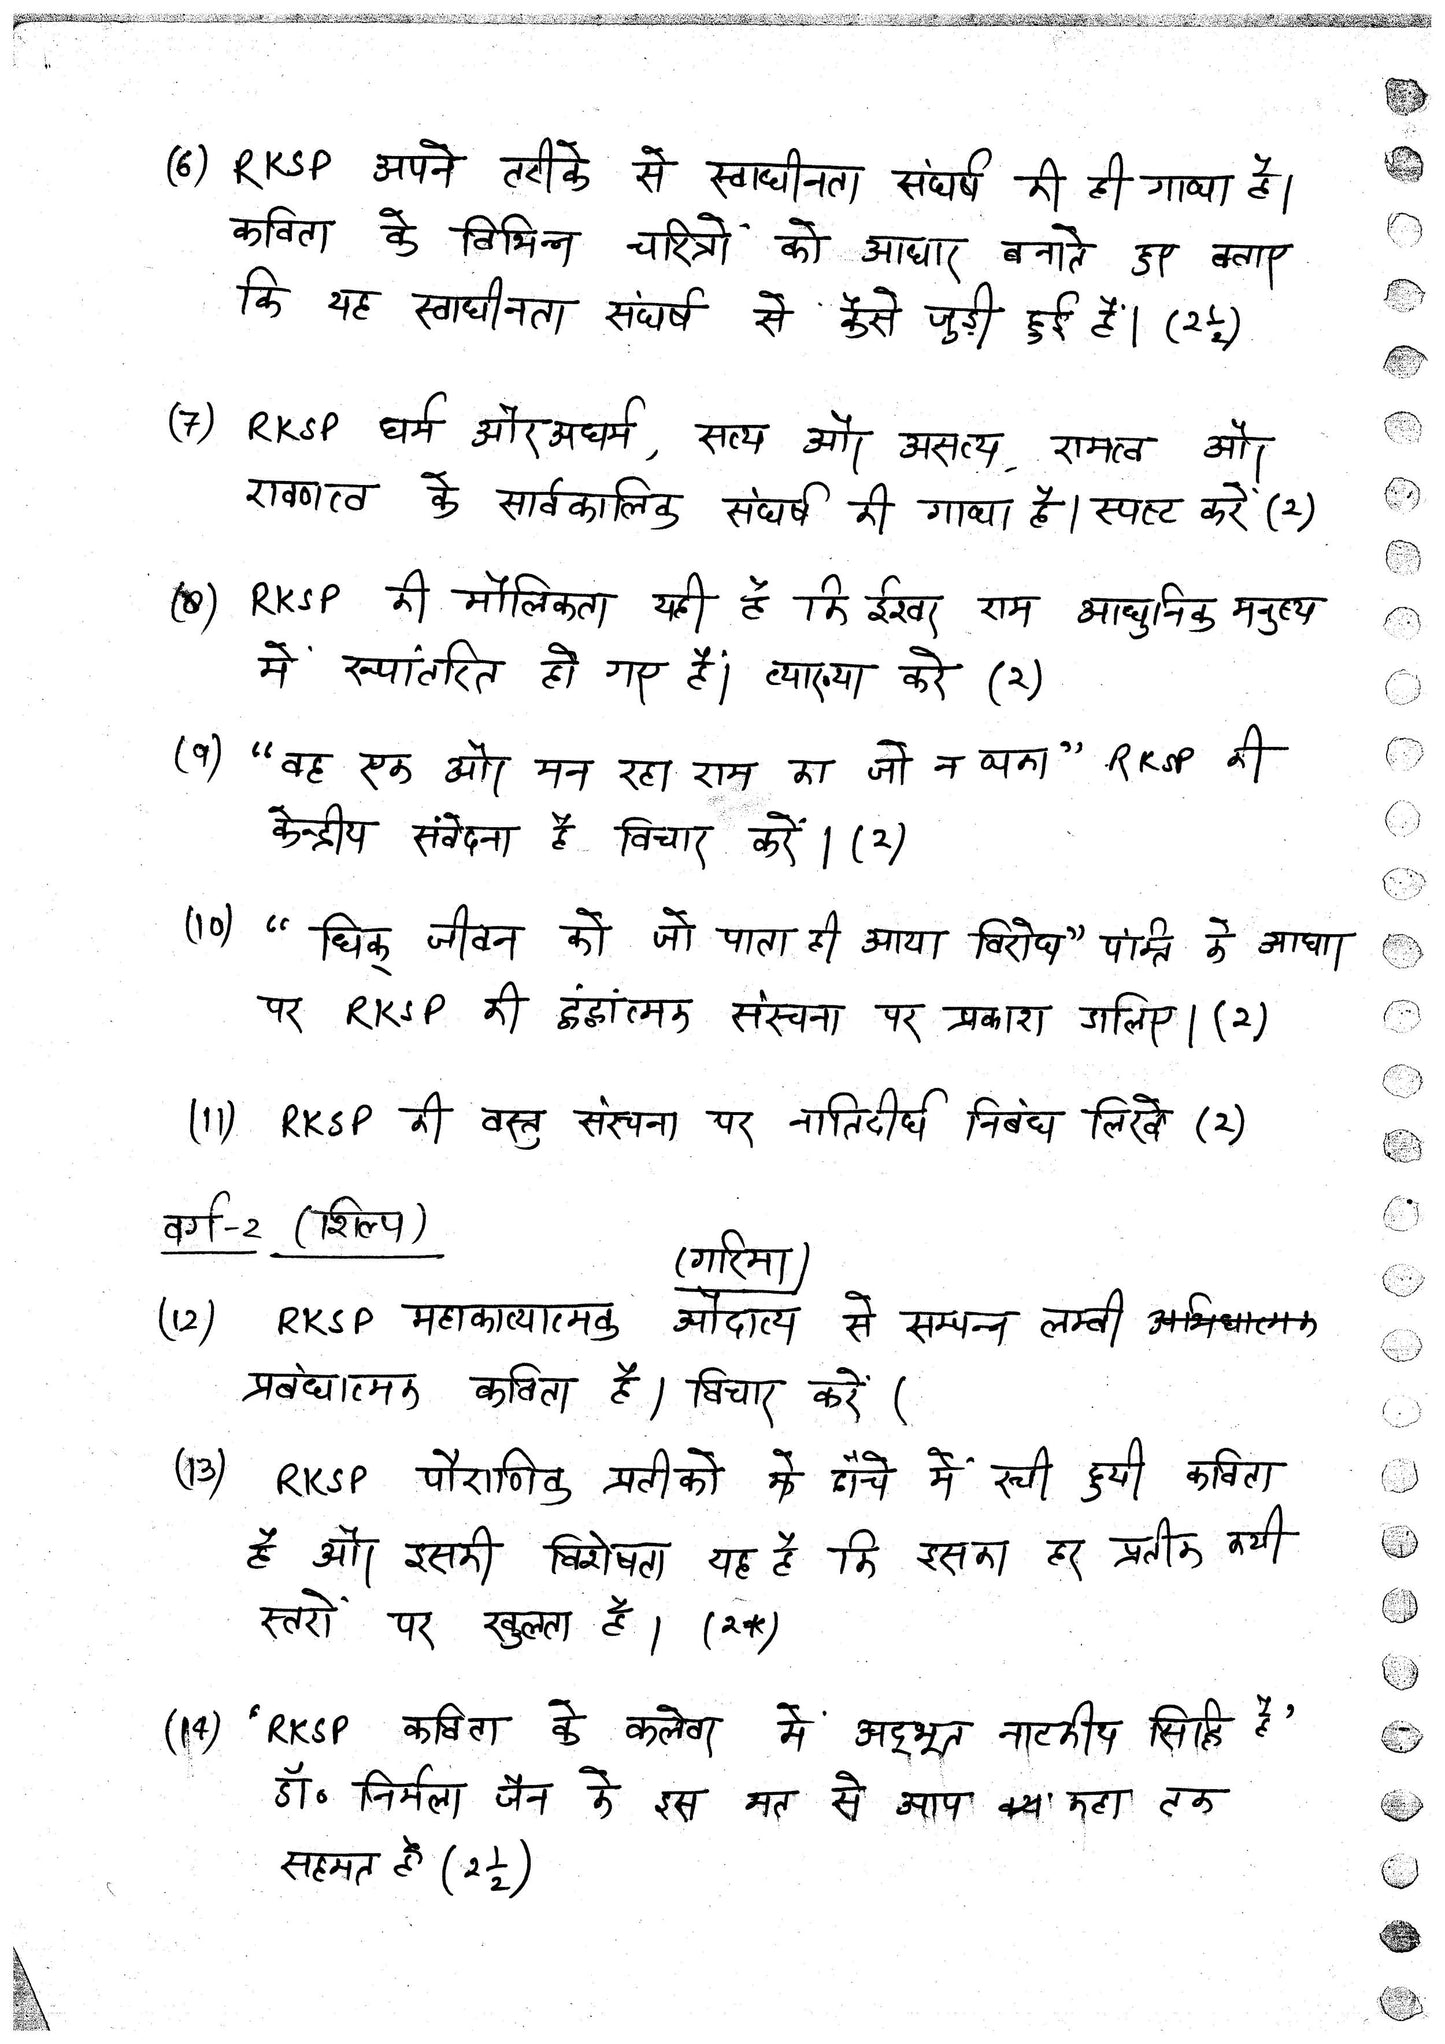 (6) RKSP अपने तरीके से स्वाधीनता संघर्ष की ही गाथा है।
कविता के विभिन्न चरित्रों को आधार बनाते हुए बताए
कि यह स्वाधीनता संघर्ष से कैसे जुड़ी हुई है। (2½)
(7) RKSP धर्म और अधर्म, सत्य और असत्य, रामत्व और
रावणत्व के सार्वकालिक संघर्ष की गाथा है। स्पष्ट करें (2)
(8) RKSP की मौलिकता यही है कि ईश्वर राम आधुनिक मनुष्य
में रूपांतरित हो गए हैं। व्याख्या करे (2)
(9) “वह एक और मन रहा राम का जो न थका” RKSP की
केन्द्रीय संवेदना है विचार करें। (2)
(10) “धिक् जीवन को जो पाता ही आया विरोध” पंक्ति के आधार
पर RKSP की द्वंद्वांत्मक संरचना पर प्रकाश डालिए। (2)
(11) RKSP की वस्तु संरचना पर नातिदीर्घ निबंध लिखे (2)
वर्ग-2 (शिल्प)
(गरिमा)
(12) RKSP महाकाव्यात्मक औदात्य से सम्पन्न लम्बी अभिधात्मक
प्रबंधात्मक कविता है। विचार करें (
(13) RKSP पौराणिक प्रतीको के ढाँचे में रची हुयी कविता
है और इसकी विशेषता यह है कि इसका हर प्रतीक कयी
स्तरों पर खुलता है। (2*)
(14) ‘RKSP कविता के कलेवर में अद्भूत नाटकीय सिद्धि है’
डॉ॰ निर्मला जैन के इस मत से आप कहा तक
सहमत है (2½)